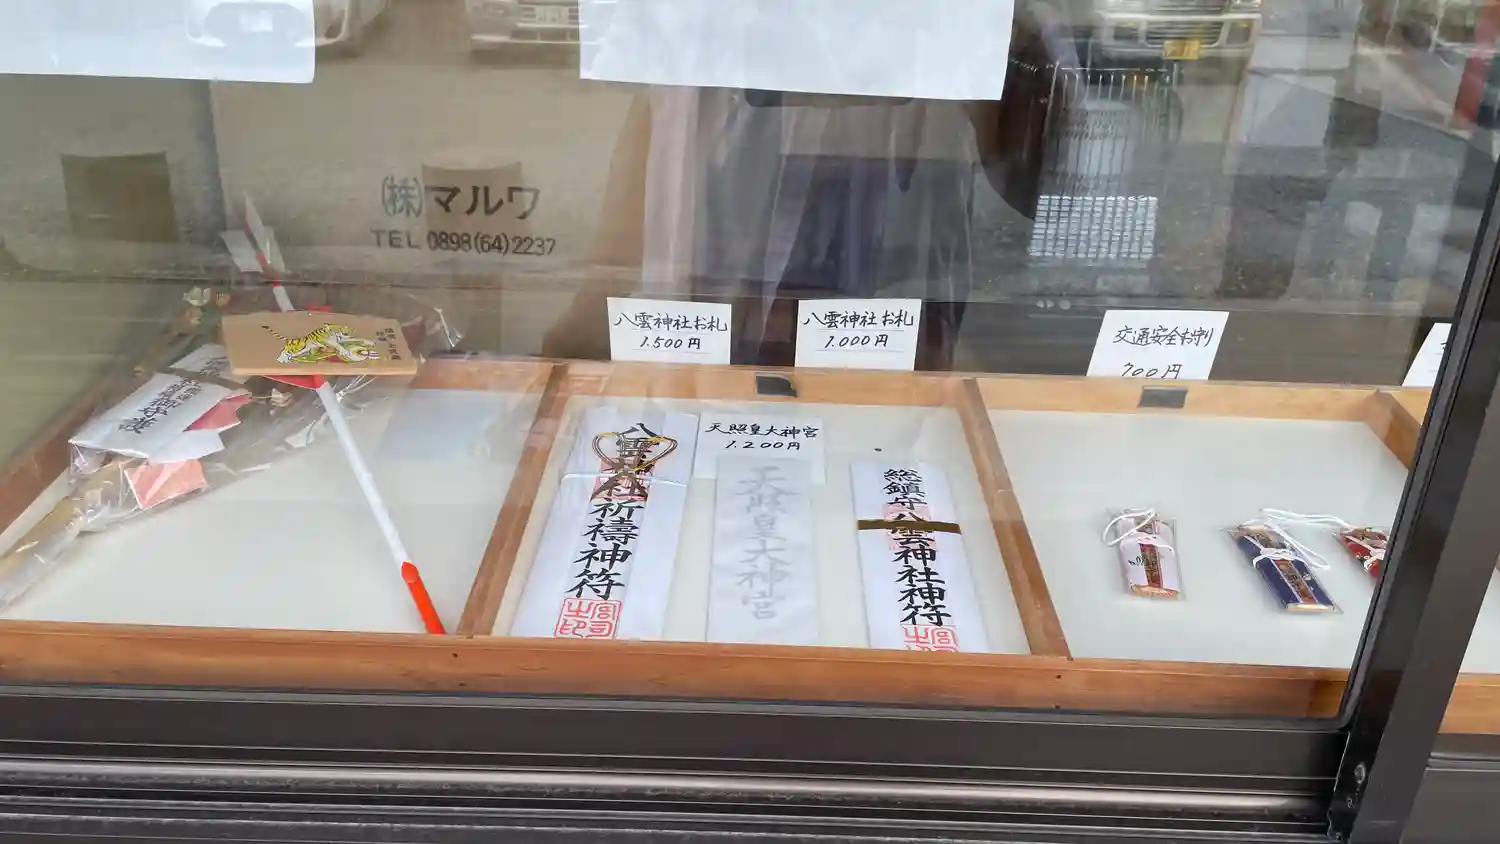 ㈱マルワ
TEL 0898(64)2237
八雲神社お札
1.500円
八雲神社お札
1.000円
交通安全お守り
700円
天照皇大神宮
1.200円
八雲神社祈禱神符
天照皇大神宮
総鎮守八雲神社神符
御守護